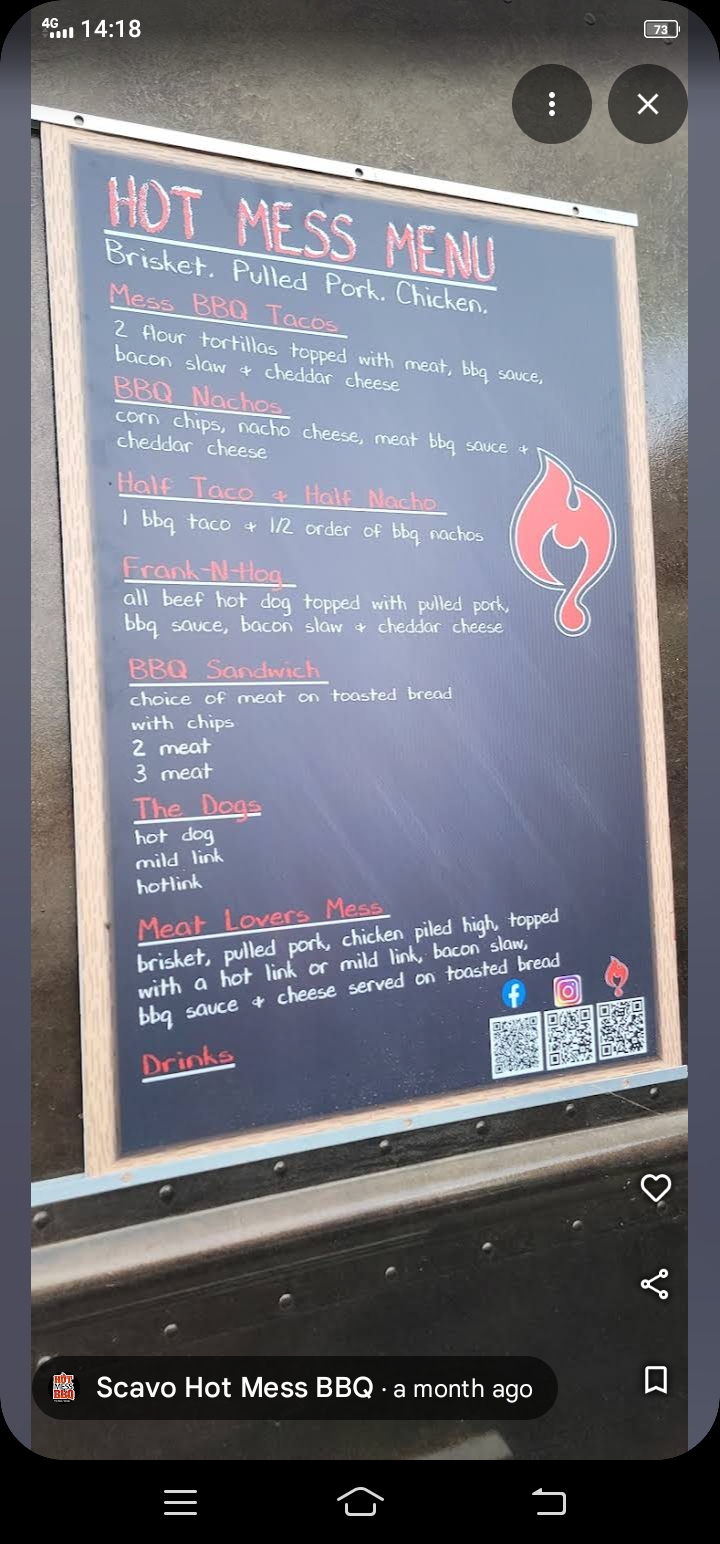 4G 14:18 73
HOT MESS MENU
Brisket. Pulled Pork. Chicken.
Mess BBQ Tacos
2 flour tortillas topped with meat, bbq sauce,
bacon slaw + cheddar cheese
BBQ Nachos
corn chips, nacho cheese, meat bbq sauce +
cheddar cheese
Half Taco + Half Nacho
1 bbq taco + 1/2 order of bbq nachos
Frank-N-Hog
all beef hot dog topped with pulled pork,
bbq sauce, bacon slaw + cheddar cheese
BBQ Sandwich
choice of meat on toasted bread
with chips
2 meat
3 meat
The Dogs
hot dog
mild link
hotlink
Meat Lovers Mess
brisket, pulled pork, chicken piled high, topped
with a hot link or mild link, bacon slaw,
bbq sauce + cheese served on toasted bread
Drinks
HOT MESS BBQ
Scavo Hot Mess BBQ · a month ago